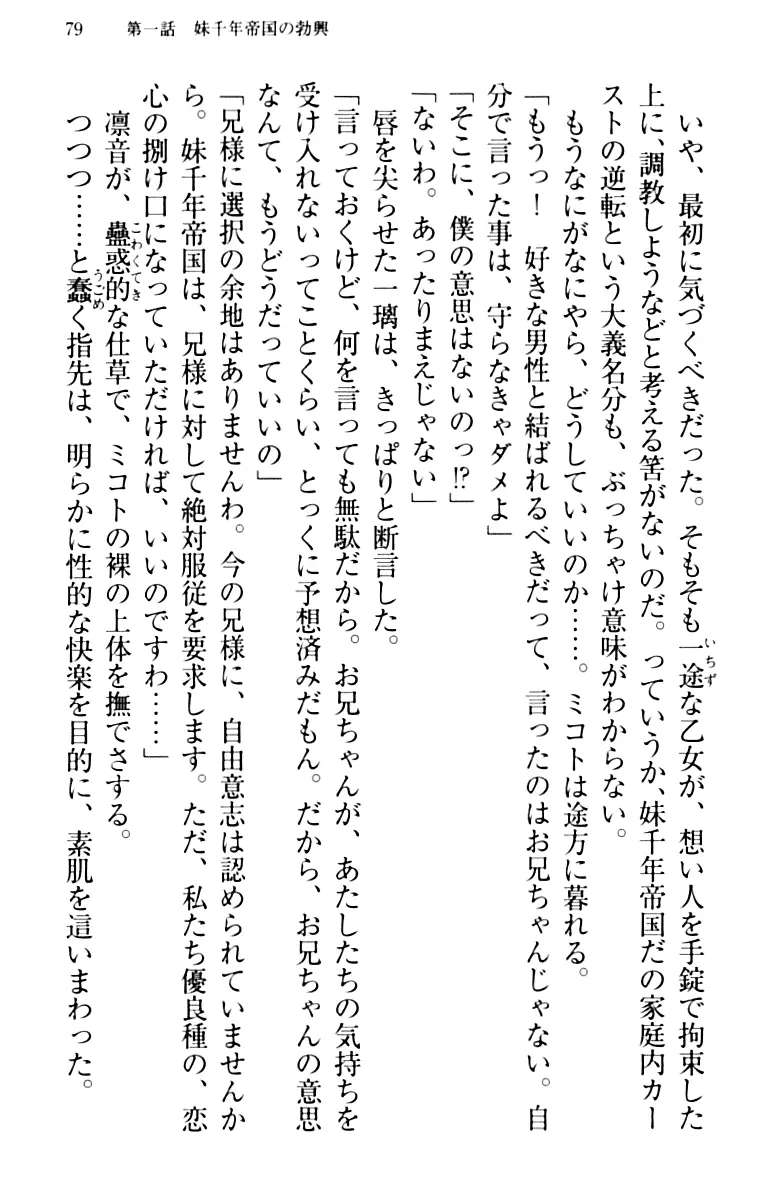 79　第一話　妹千年帝国の勃興
いや、最初に気づくべきだった。そもそも一途な乙女が、想い人を手錠で拘束した
いちず
上に、調教しようなどと考える筈がないのだ。っていうか、妹千年帝国だの家庭内カー
ストの逆転という大義名分も、ぶっちゃけ意味がわからない。
もうなにがなにやら、どうしていいのか……。ミコトは途方に暮れる。
「もうっ！　好きな男性と結ばれるべきだって、言ったのはお兄ちゃんじゃない。自
分で言った事は、守らなきゃダメよ」
「そこに、僕の意思はないのっ!?」
「ないわ。あったりまえじゃない」
唇を尖らせた一璃は、きっぱりと断言した。
「言っておくけど、何を言っても無駄だから。お兄ちゃんが、あたしたちの気持ちを
受け入れないってことくらい、とっくに予想済みだもん。だから、お兄ちゃんの意思
なんて、もうどうだっていいの」
「兄様に選択の余地はありませんわ。今の兄様に、自由意志は認められていませんか
ら。妹千年帝国は、兄様に対して絶対服従を要求します。ただ、私たち優良種の、恋
心の捌け口になっていただければ、いいのですわ……」
凛音が、蠱惑的な仕草で、ミコトの裸の上体を撫でさする。
こわくてき
つつつ……と蠢く指先は、明らかに性的な快楽を目的に、素肌を這いまわった。
うごめ